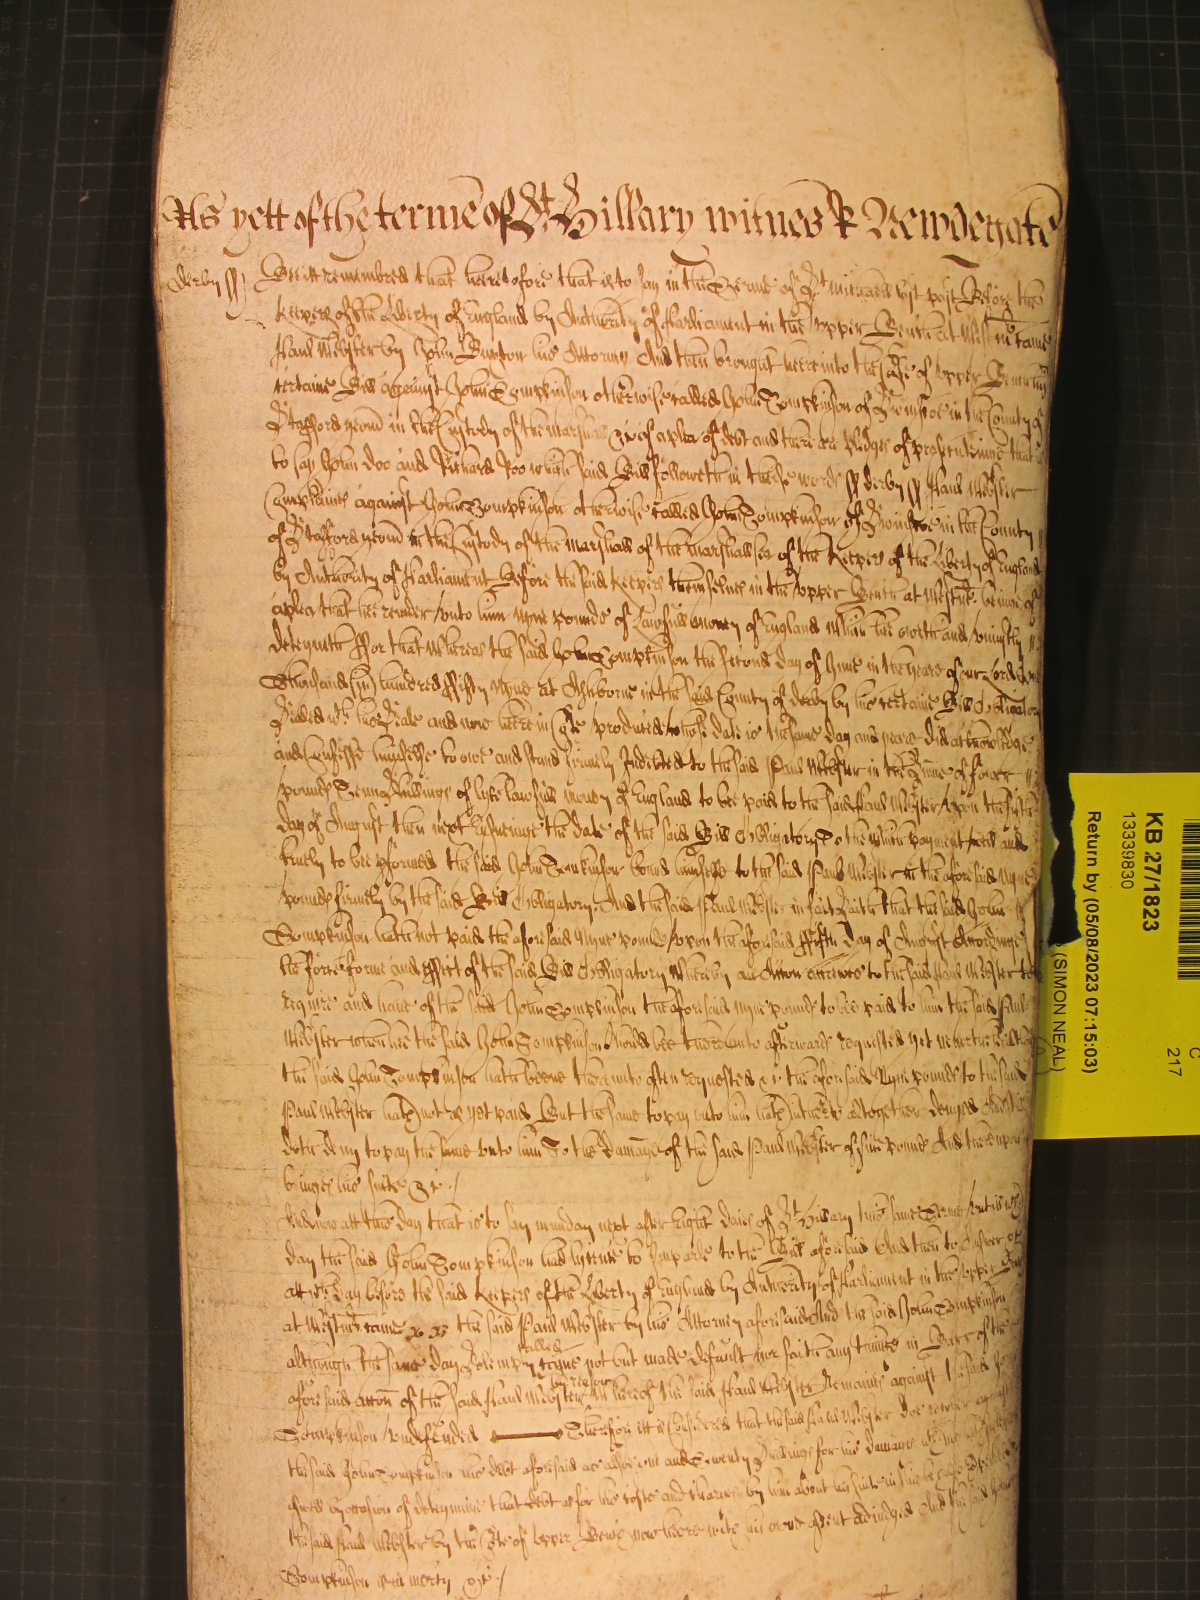 As yett of the terme of St Hillary witnes R Newdegate
Derby ss Bee itt remembred that heretofore that is to say in the Terme of St Michaell last past Before the
Keepers of the Liberty of England by Authority of Parliament in the upper Bench at Westmr came
Paul Webster by John Buxton his Attorney And then brought here into the Cte of upper Bench his
certaine Bill against John Tompkinson otherwise called John Tompkinson of in the County of
Stafford yeom in the Custody of the Marshall &c of a plea of debt and there are pledges of prosecuting that is
to say John Doo and Richard Roo which said Bill followeth in these words ss Derby ss Paul Webster
Complaines against John Tompkinson otherwise called John Tompkinson of in the County
of Stafford yeom in the Custody of the Marshall of the Marshallsea of the Keepers of the Liberty of England
by Authority of Parliament Before the said Keepers themselves in the upper Bench at Westmr being of
a plea that hee render unto him nyne pounds of Lawfull money of England which hee oweth and uniustly
deteyneth ffor that Whereas the said John Tompkinson the second day of June in the yeare of our Lord One
Thousand six hundred ffifty nyne at Ashborne in the said County of Derby by his certaine Bill Obligatory
Sealed wth his Seale and now here in Cte produced whose date is the same day and yeare did acknowledge
and confesse himselfe to owe and stand firmely Indebted to the said Paul Webster in the Summe of fower
pounds Tenn Shillings of like lawfull money of England to bee paid to the said Paul Webster upon the fifth
day of August then next ensueinge the date of the said Bill Obligatory To the which payment well and
truely to bee pformed the said John Tompkinson bound himselfe to the said Paul Webster in the aforesaid nyne
pounds firmely by the said Bill Obligatory And the said Paul Webster in fact saith that the said John
Tompkinson hath not paid the aforesaid nyne pounds upon the aforesaid ffifth day of August Accordinge to
the force forme and effect of the said Bill Obligatory Whereby an Accon accrewes to the said Paul Webster to
require and have of the said John Tompkinson the aforesaid nyne pounds to bee paid to him the said Paul
Webster when hee the said John Tompkinson should bee thereunto afterwards requested yet neverthelesse
the said John Tompkinson hath beene thereunto often requested &c the aforesaid Nyne pounds to the said
Paul Webster hath not as yet paid But the same to pay unto him hath hitherto altogether denyed And still
doth deny to pay the same unto him To the damage of the said Paul Webster of five pounds And thereupon
bringes his suite &c
And now att this day that is to say munday next after Eight daies of St Hillary this same Terme untill wch
day the said John Tompkinson had lycence to Imparle to the Bill aforesaid And then to Answer &c
att wch day before the said Keepers of the Liberty of England by Authority of Parliament in the upper Bench
at Westmr came the said Paul Webster by his Attorney aforesaid And the said John Tompkinson
although the same day Solemply called came not but made default nor saith any thinge in Barr of the
aforesaid accon of the said Paul Webster by reason whereof the said Paul Webster Remaines against the said John
Tompkinson undefended Therefore itt is Considered that the said Paul Webster doe recover against
the said John Tompkinson his debt aforesaid as alsoe one and Twenty Shillings for his damages
by occasion of deteyninge that debt as for his costs and charges by him about his suite in
the said Paul Webster by the Cte of upper Bench now here with his owne assent adiudged And the said John
Tompkinson in mercy &c
KB 27/1823
13339830
Return by (05/08/2023 07:15:03)
(SIMON NEAL)
C
217